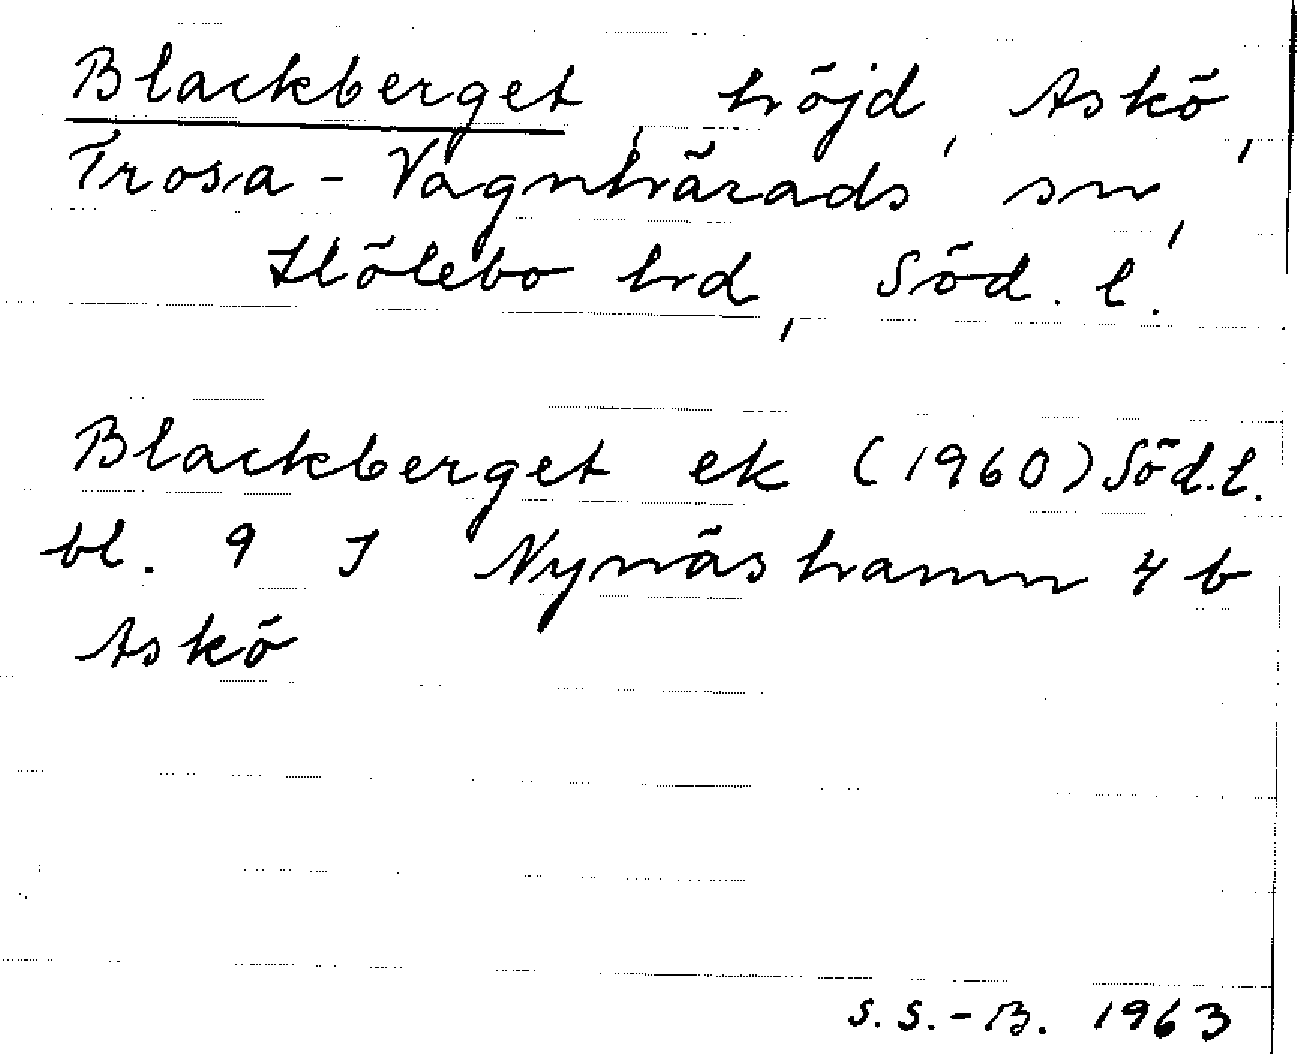 Blackberget, höjd, Askö,
Trosa-Vagnhärads sn,
Hölebo hd, Söd. l.
Blackberget ek (1960) Söd.l.
bl. 9 I Nynäshamn 4 b
Askö
S.S.-B. 1963